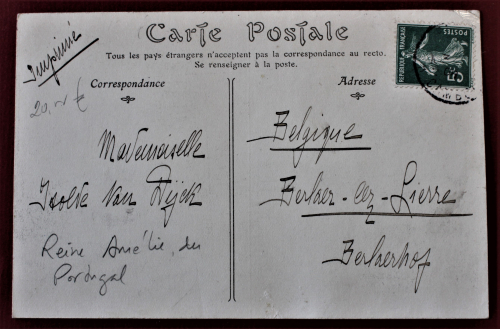 Carte Postale
Tous les pays étrangers n'acceptent pas la correspondance au recto.
Se renseigner à la poste.
Imprimé
Correspondance
Adresse
POSTES
REPUBLIQUE FRANÇAISE
5c
Mademoiselle
Isolde Van Dijck
Reine Amélie du
Portugal
Belgique
Berlaer-lez-Lierre
Berlaerhof